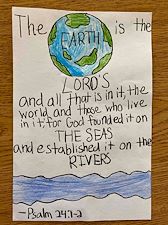 The EARTH is the
LORD'S
and all that is in it, the
world, and those who live
in it; for God founded it on
THE SEAS
and established it on the
RIVERS
-Psalm 24:1-2